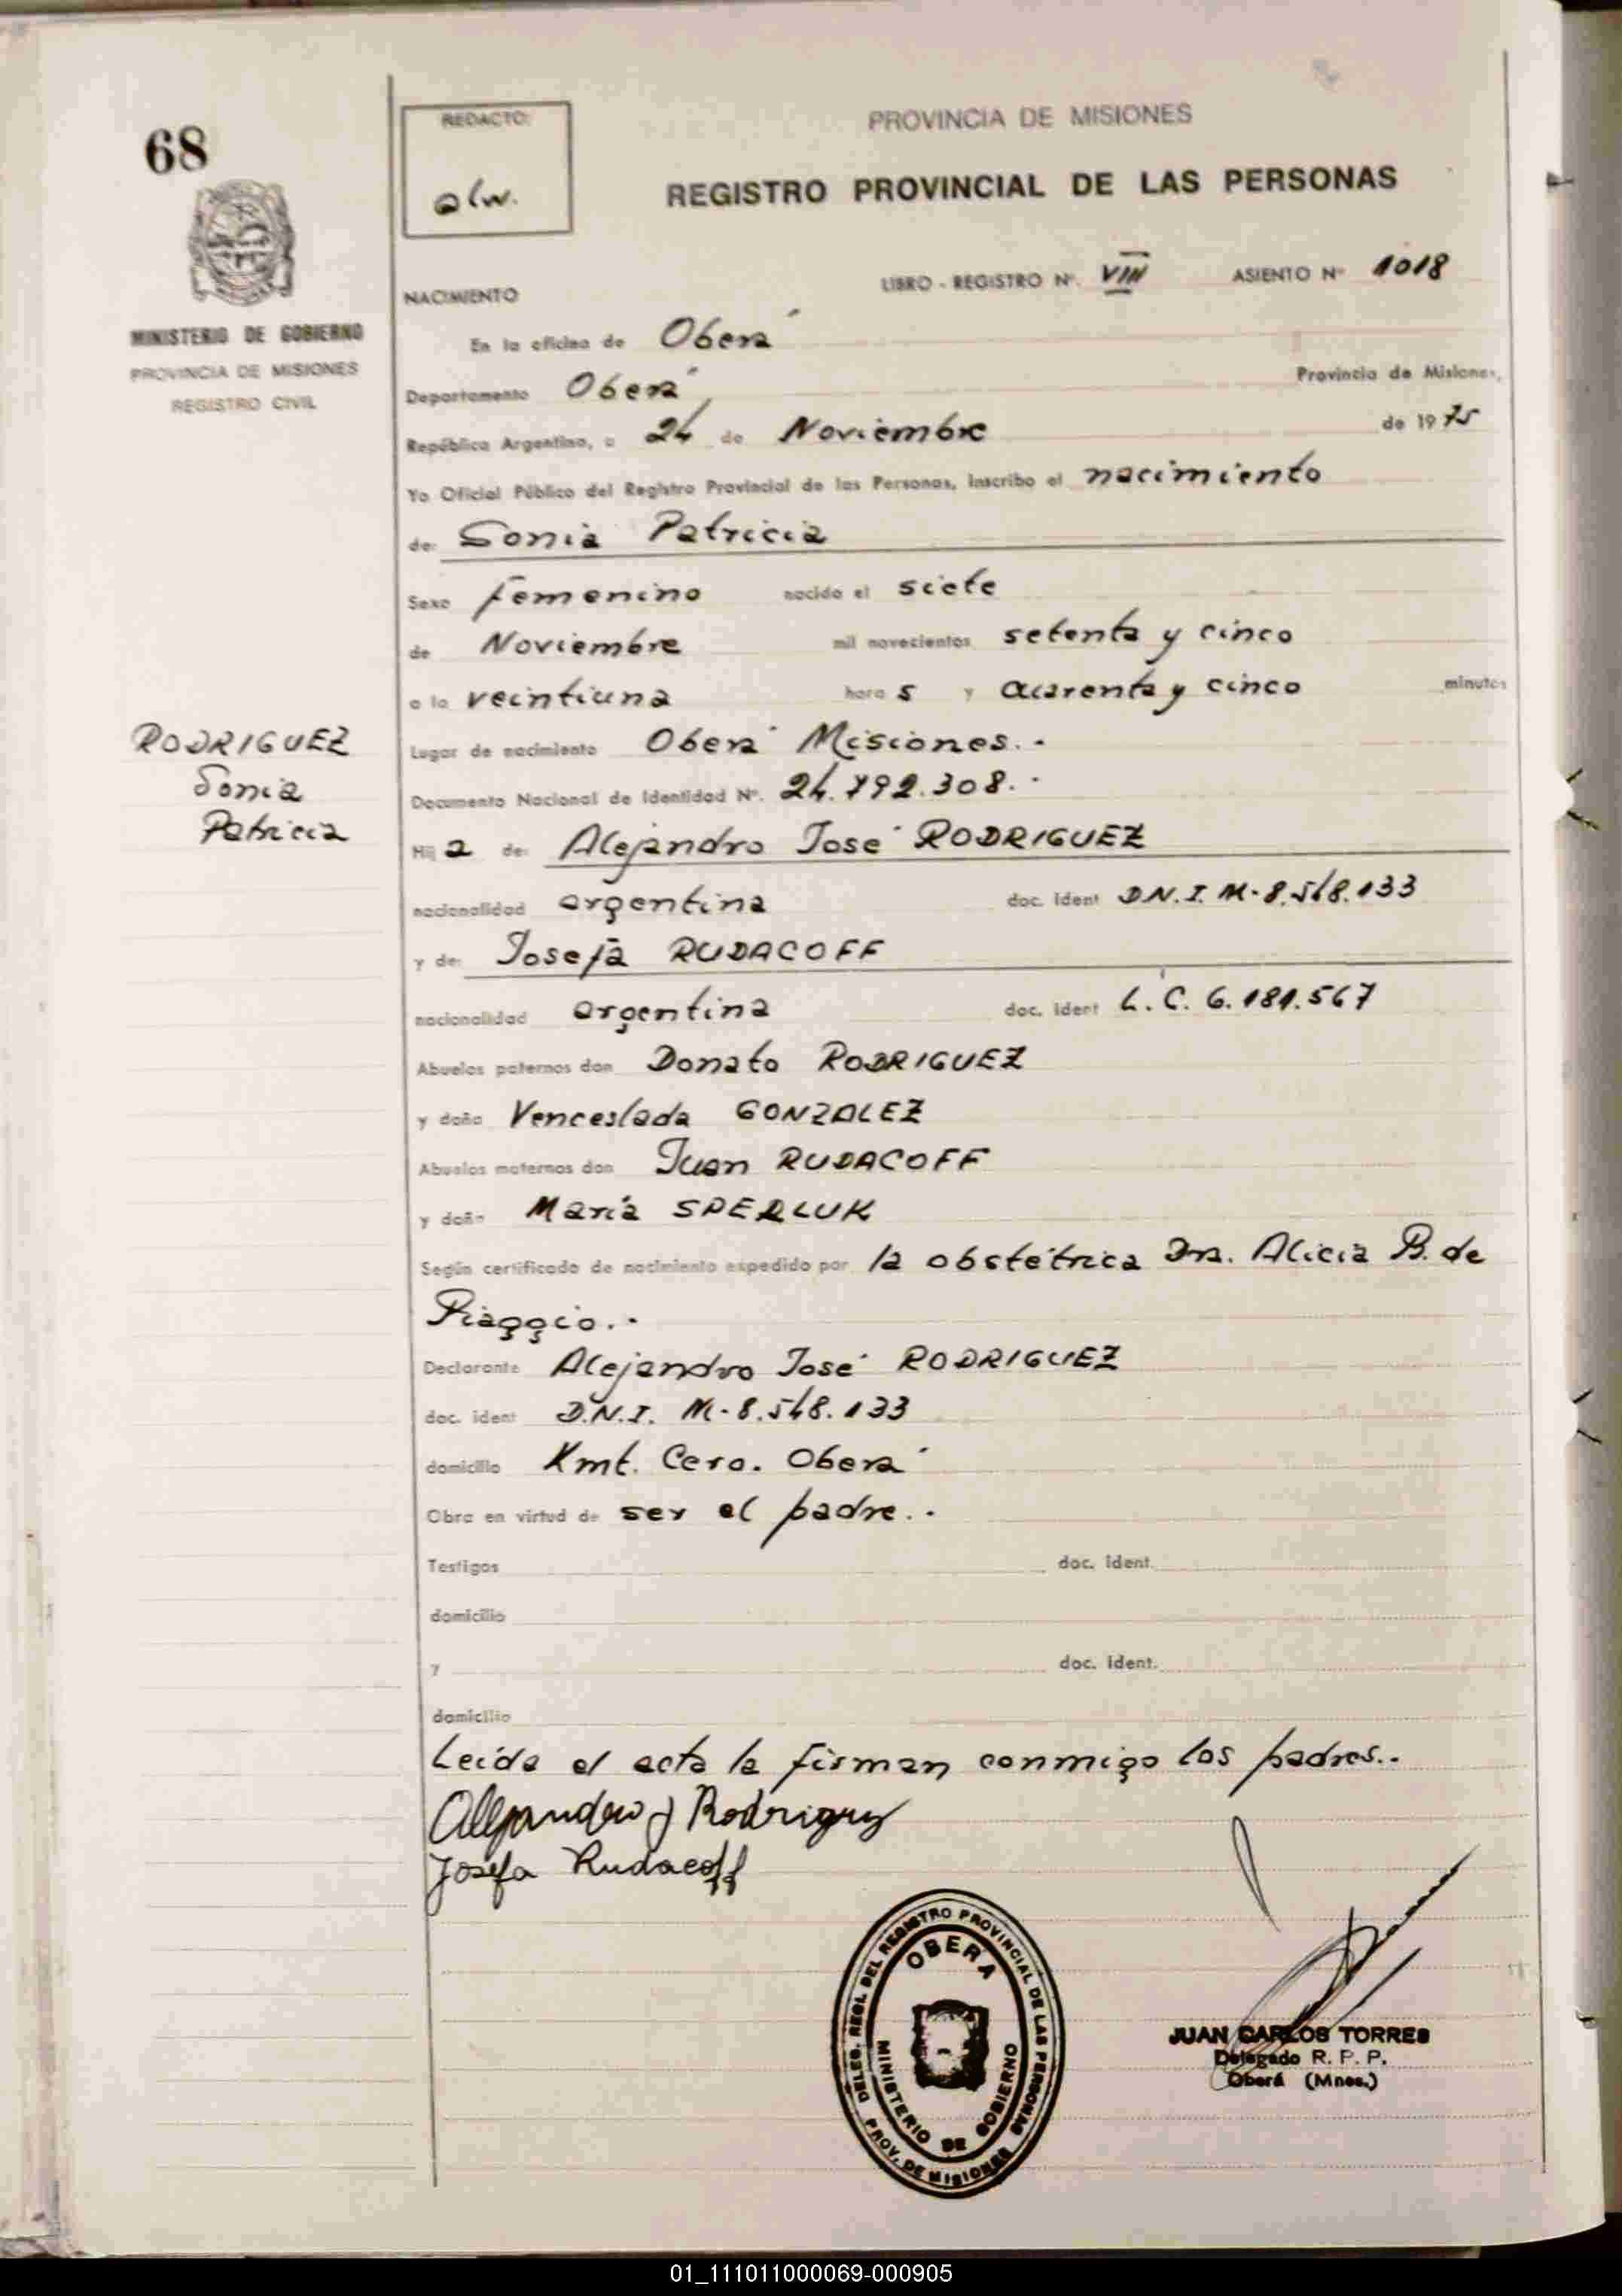 68
REDACTO:
alw.
PROVINCIA DE MISIONES
REGISTRO PROVINCIAL DE LAS PERSONAS
MINISTERIO DE GOBIERNO
PROVINCIA DE MISIONES
REGISTRO CIVIL
LIBRO - REGISTRO Nº. VIII ASIENTO Nº 1018
NACIMIENTO
En la oficina de Oberá
Departamento Oberá Provincia de Misiones,
República Argentina, a 24 de Noviembre de 1975
Yo Oficial Público del Registro Provincial de las Personas, inscribo el nacimiento
de: Sonia Patricia
Sexo femenino nacido el siete
de Noviembre mil novecientos setenta y cinco
a la veintiuna hora s y cuarenta y cinco minutos
Lugar de nacimiento Oberá Misiones.-
RODRIGUEZ
Sonia
Patricia
Documento Nacional de Identidad Nº. 24.792.308.-
Hij a de: Alejandro José RODRIGUEZ
nacionalidad argentina doc. ident D.N.I. M-8.548.133
y de: Josefa RUDACOFF
nacionalidad argentina doc. ident L.C. 6.181.567
Abuelos paternos don Donato RODRIGUEZ
y doña Venceslada GONZALEZ
Abuelos maternos don Juan RUDACOFF
y doña María SPERLUK
Según certificado de nacimiento expedido por la obstétrica Dra. Alicia B. de
Piaggio.-
Declarante Alejandro José RODRIGUEZ
doc. ident D.N.I. M-8.548.133
domicilio Kmt. Cero. Oberá
Obra en virtud de ser el padre.-
Testigos doc. ident.
domicilio
y doc. ident.
domicilio
Leída el acta la firman conmigo los padres.-
Alejandro J Rodriguez
Josefa Rudacoff
DELEG. REGL. DEL REGISTRO PROVINCIAL DE LAS PERSONAS
OBERA
MINISTERIO DE GOBIERNO
PROV. DE MISIONES
JUAN CARLOS TORRES
Delegado R. P. P.
Oberá (Mnes.)
01_111011000069-000905